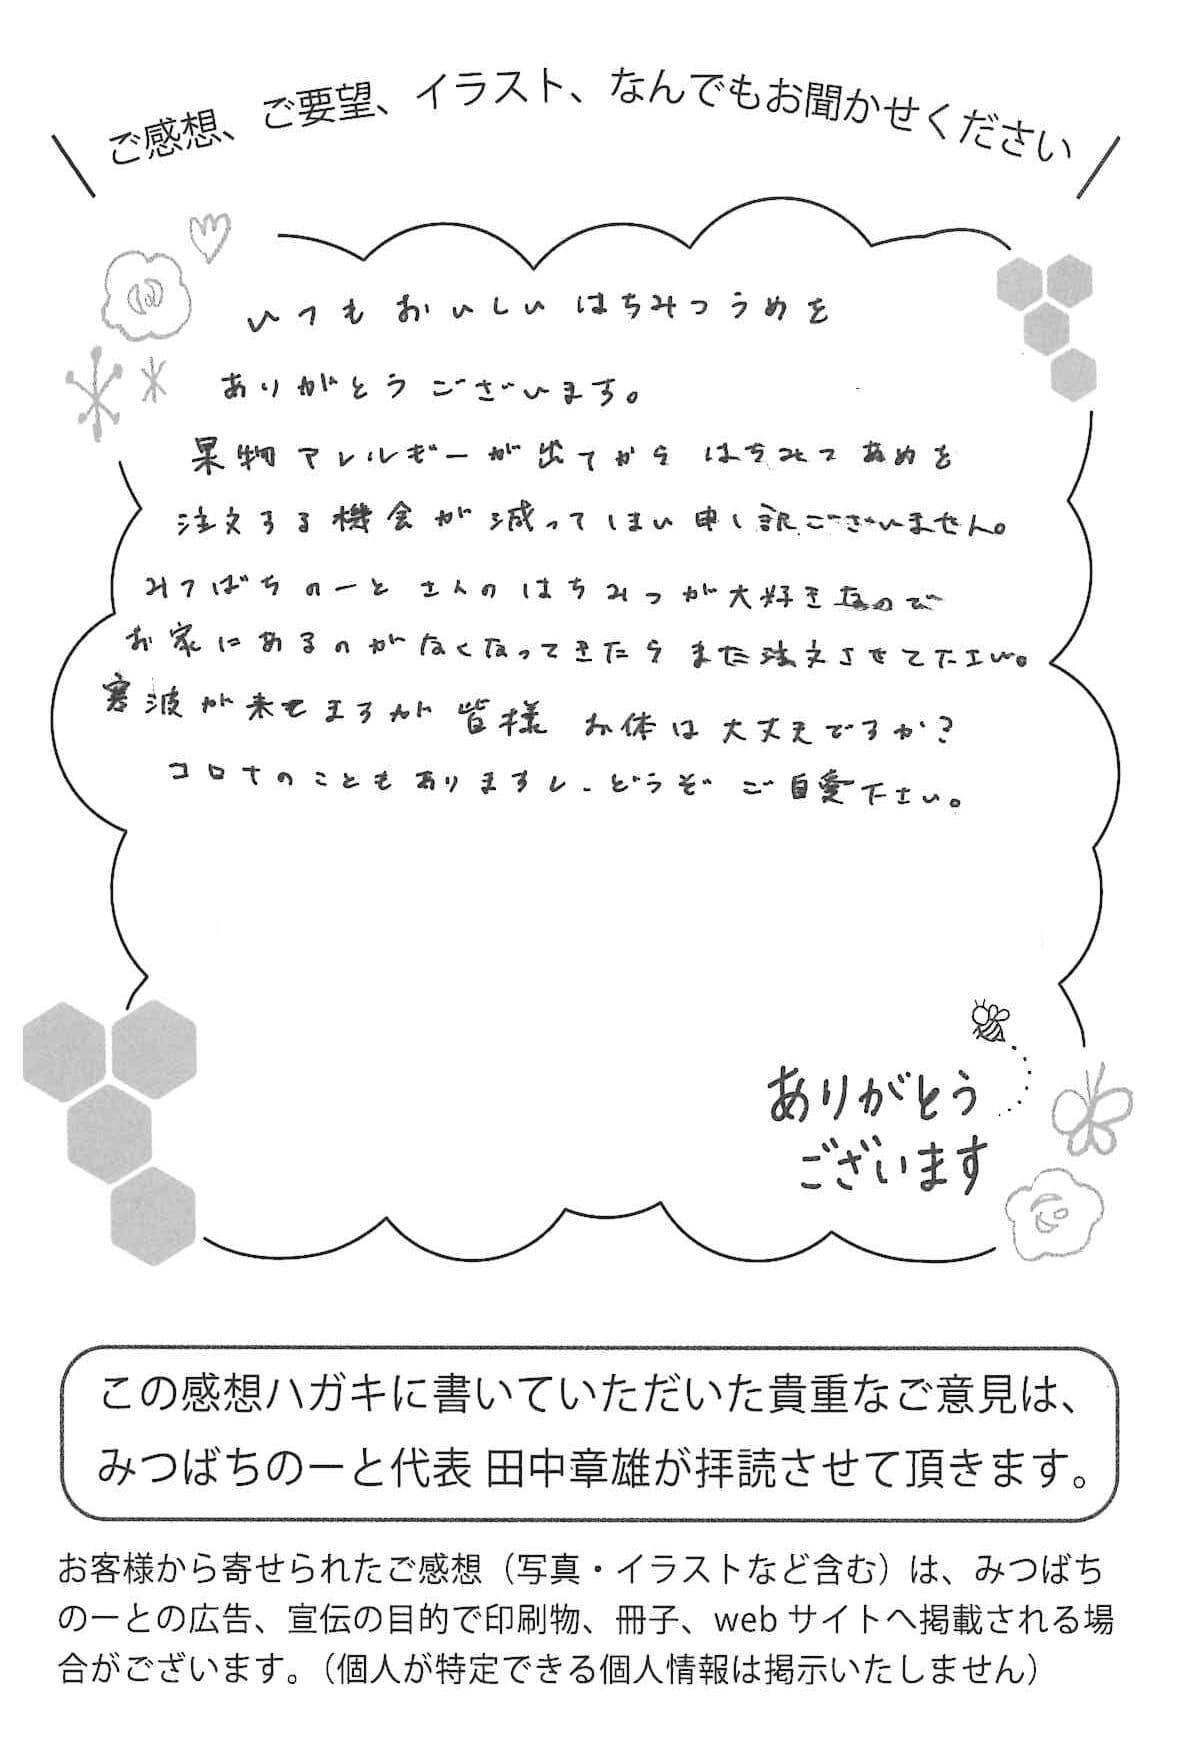 ご感想、ご要望、イラスト、なんでもお聞かせください
いつもおいしいはちみつうめを
ありがとうございます。
果物アレルギーが出てからはちみつあめを
注文する機会が減ってしまい申し訳ございません。
みつばちのーとさんのはちみつが大好きなので
お家にあるのがなくなってきたらまた注文させて下さい。
寒波が来てますが皆様お体は大丈夫ですか?
コロナのこともありますし、どうぞご自愛下さい。
ありがとう
ございます
この感想ハガキに書いていただいた貴重なご意見は、
みつばちのーと代表 田中章雄が拝読させて頂きます。
お客様から寄せられたご感想（写真・イラストなど含む）は、みつばち
のーとの広告、宣伝の目的で印刷物、冊子、web サイトへ掲載される場
合がございます。（個人が特定できる個人情報は掲示いたしません）